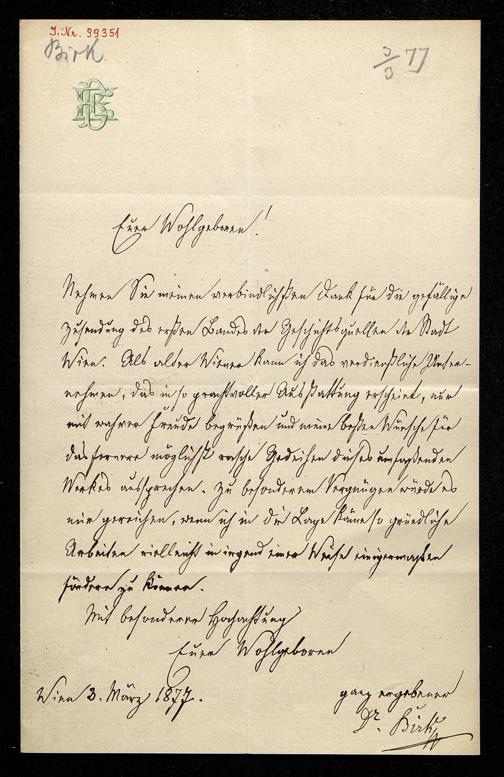 I. Nr. 99351
Birk.
3/3 77
Euer Wohlgeboren!
Nehmen Sie meinen verbindlichsten Dank für die gefällige
Zusendung des ersten Bandes der Geschichtsquellen der Stadt
Wien. Als alter Wiener kann ich das verdienstliche Unter-
nehmen, das in so prachtvoller Ausstattung erscheint, nur
mit wahrer Freude begrüßen und meine besten Wünsche für
das fernere möglichst rasche Gedeihen dieses umfassenden
Werkes aussprechen. Zu besonderem Vergnügen würde es
mir gereichen, wenn ich in die Lage käme so gründliche
Arbeiten vielleicht in irgend einer Weise einigermaßen
fördern zu können.
Mit besonderer Hochachtung
Euer Wohlgeboren
Wien 3. März 1877.
ganz ergebener
Dr. Birk